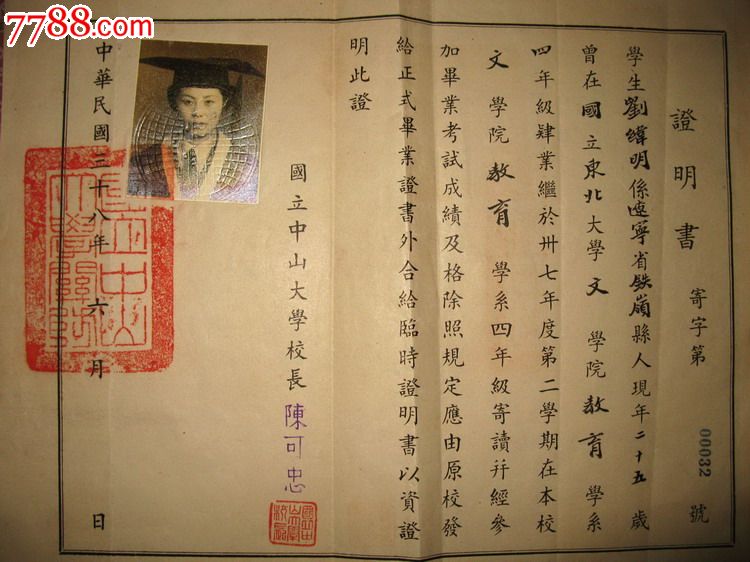 7788.com
證明書
寄字第00032號
學生劉緯明係遼寧省鉄嶺縣人現年二十五歲
曾在國立東北大學文學院教育學系
四年級肄業繼於卅七年度第二學期在本校
文學院教育學系四年級寄讀幷經參
加畢業考試成績及格除照規定應由原校發
給正式畢業證書外合給臨時證明書以資證
明此證
國立中山大學校長陳可忠
國立中山大學校長
中華民國三十八年六月日
國立中山大學關防